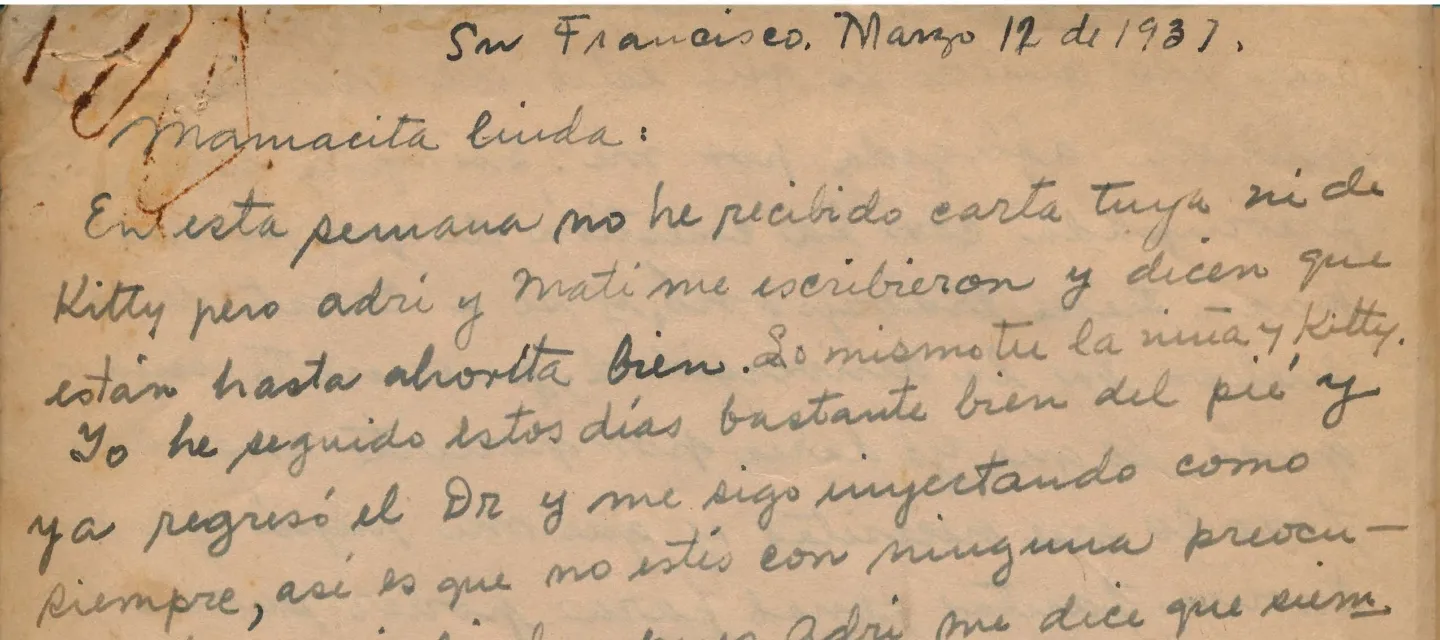 Sn Francisco. Marzo 12 de 1937.
Mamacita linda:
En esta semana no he recibido carta tuya ni de
Kitty pero Adri y Mati me escribieron y dicen que
están hasta ahorita bien. Lo mismo tu la niña y Kitty.
Yo he seguido estos días bastante bien del pié y
ya regresó el Dr y me sigo inyectando como
siempre, asi es que no estés con ninguna preocu-
Adri me dice que siem